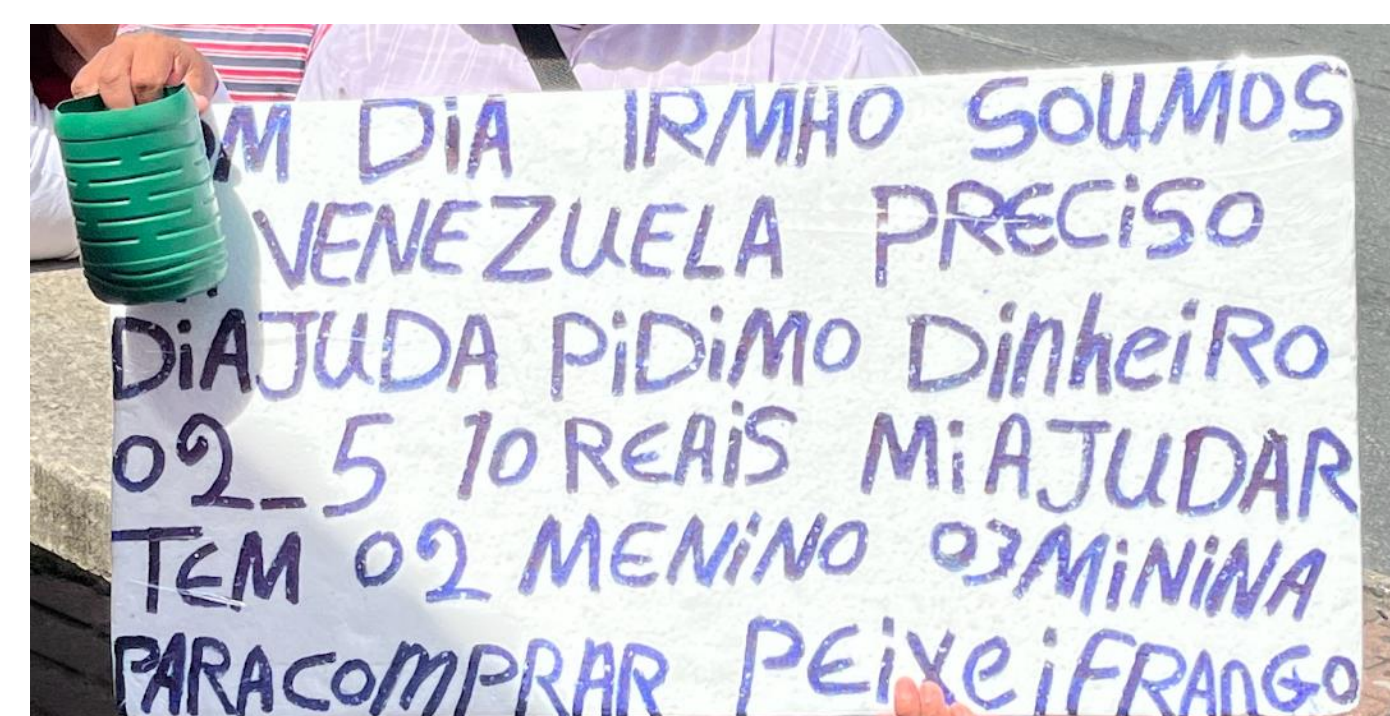 DiA IRMHO SOUMOS
VENEZUELA PRECiSO
DiAJUDA PiDiMO DinheiRO
02_5 10 REAiS Mi AJUDAR
TEM 02 MENiNO 03 MiNiNA
PARA COMPRAR PEixe i FRANGO